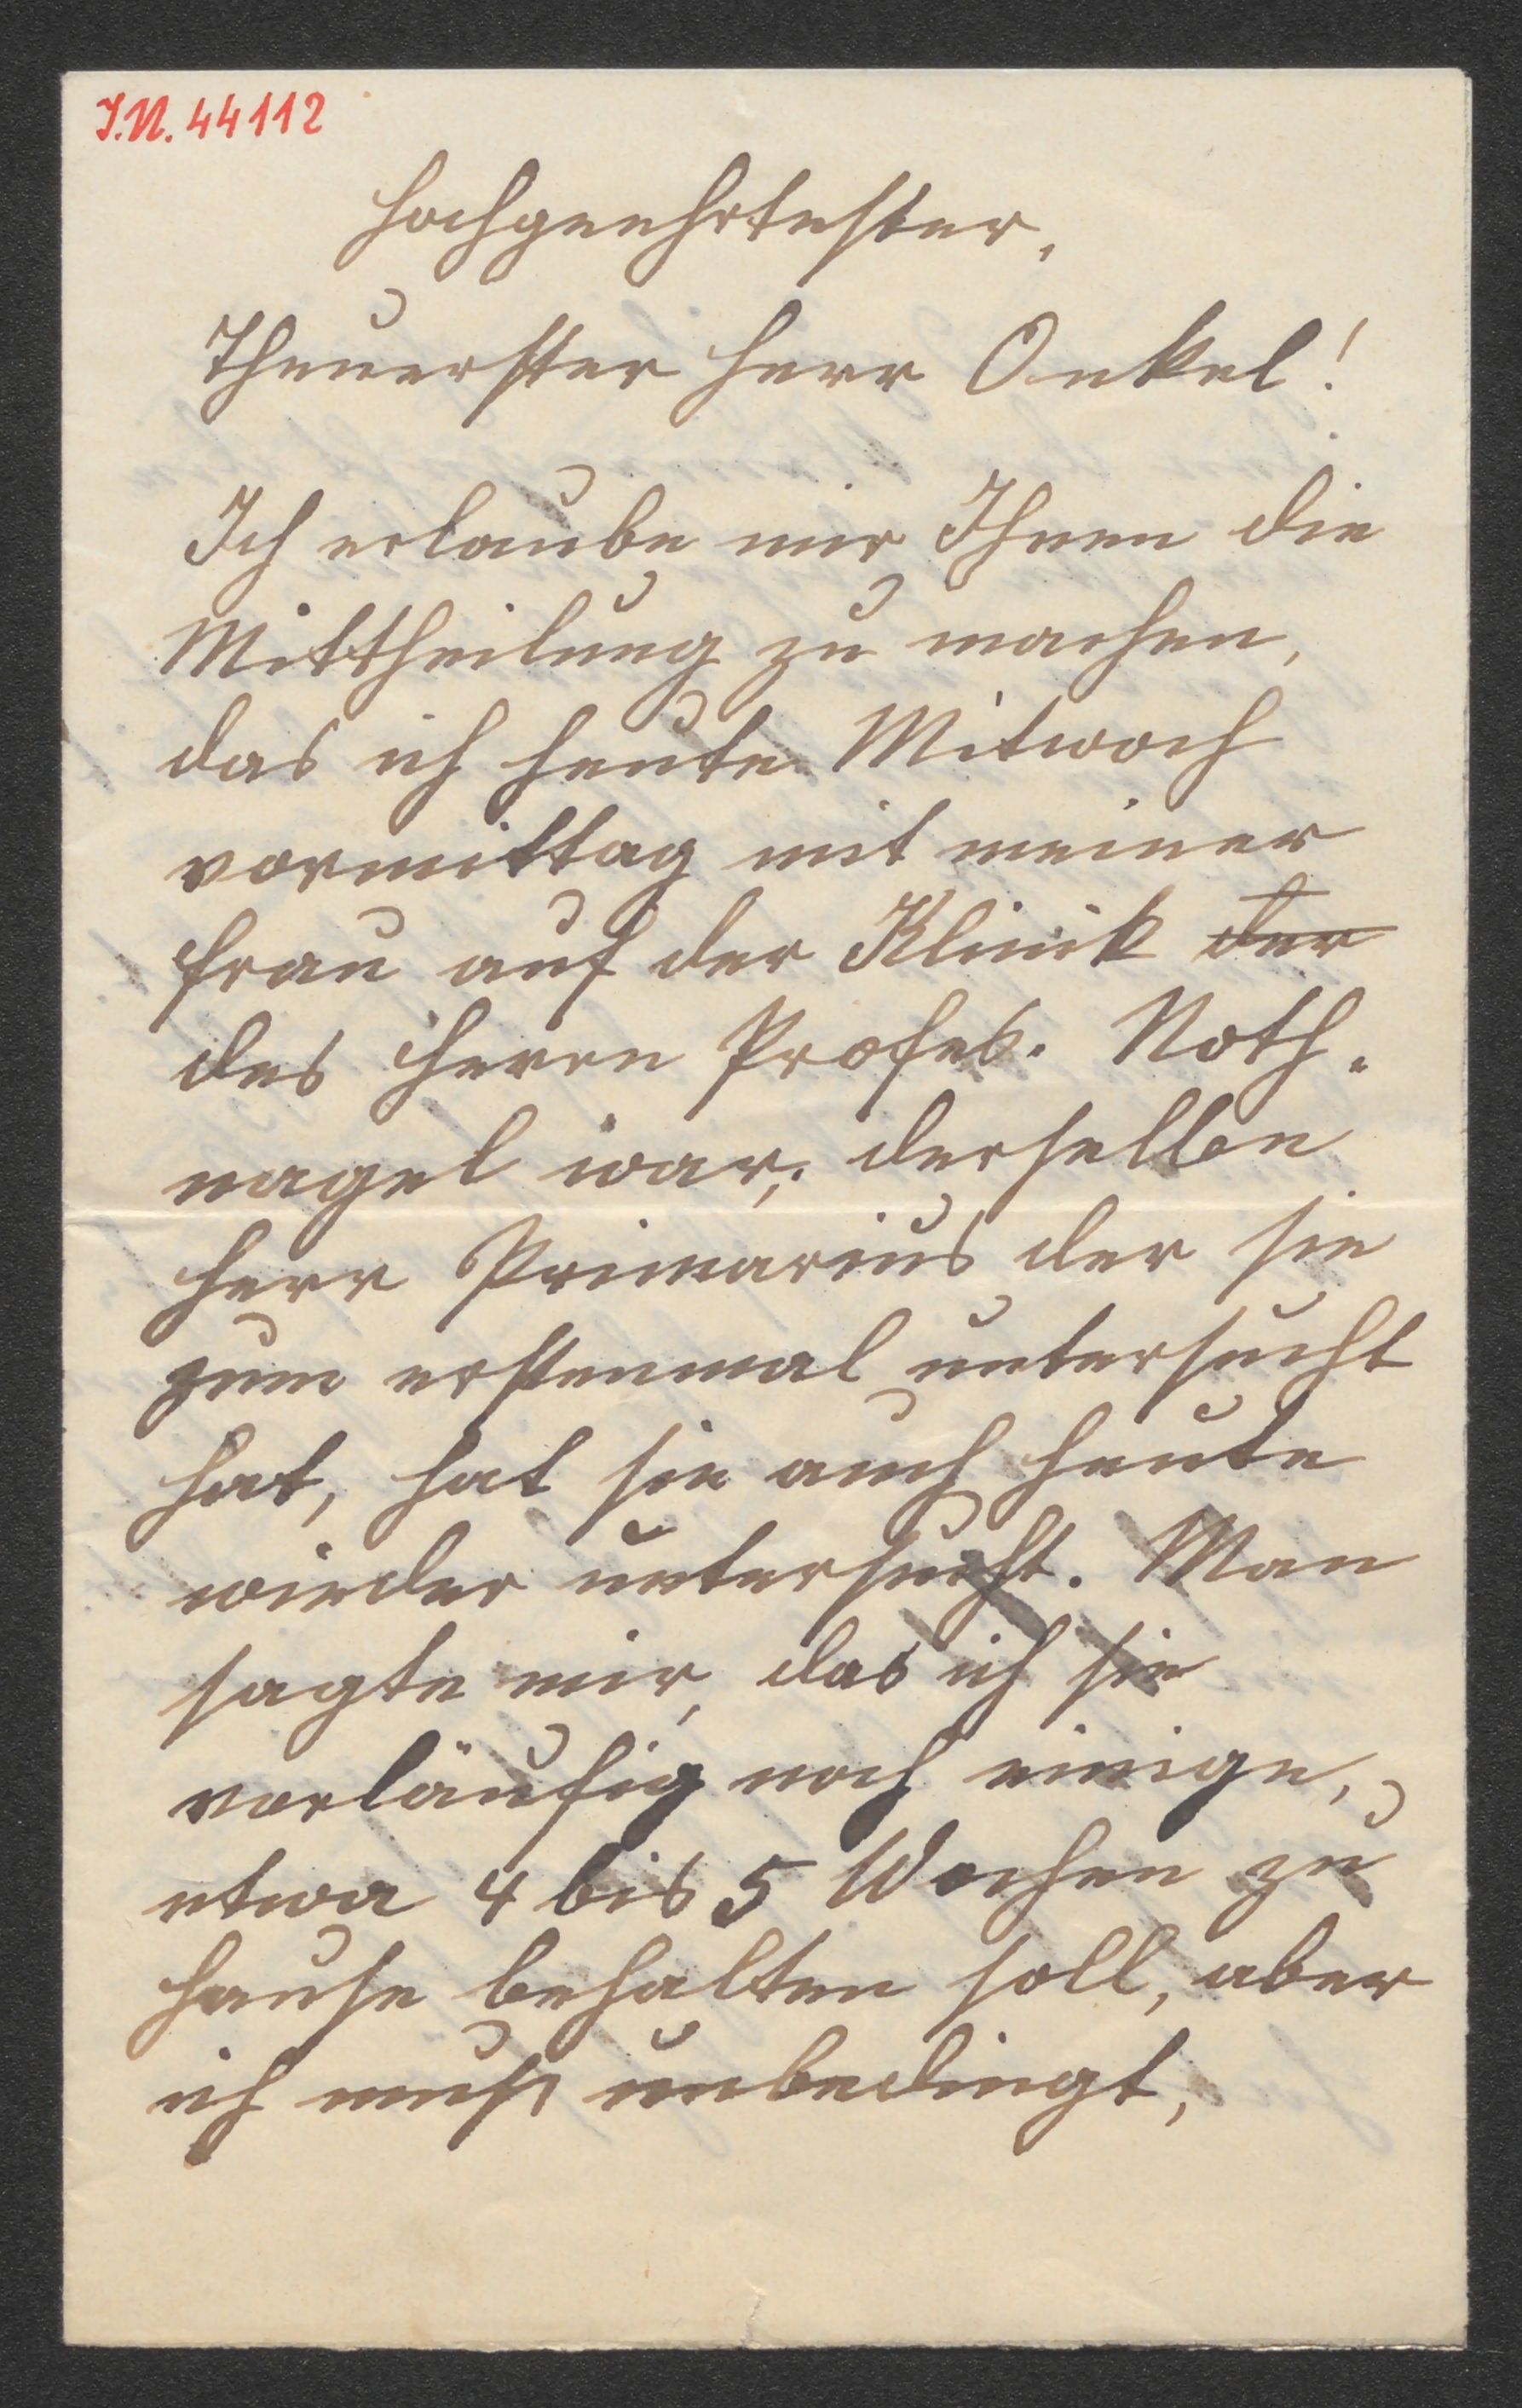 I.N. 44112
Hochgeehrtester,
Theuerster Herr Onkel!
Ich erlaube mir Ihnen die
Mittheilung zu machen,
das ich heute Mitwoch
vormittag mit meiner
Frau auf der Klinik der
des Herrn Profes. Noth-
nagel war; derselbe
Herr Primarius der sie
zum erstenmal untersucht
hat, hat sie auch heute
wieder untersucht. Man
sagte mir, das ich sie
vorläufig noch einige,
etwa 4 bis 5 Wochen zu
Hause behalten soll, aber
ich muß unbedingt,